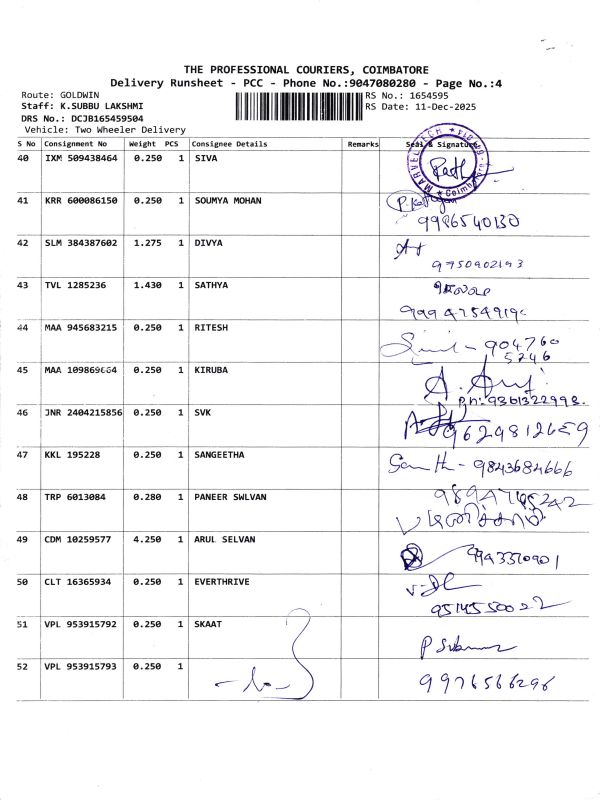 THE PROFESSIONAL COURIERS, COIMBATORE
Delivery Runsheet - PCC - Phone No.:9047080280 - Page No.:4
Route: GOLDWIN
Staff: K.SUBBU LAKSHMI
DRS No.: DCJB165459504
Vehicle: Two Wheeler Delivery
RS No.: 1654595
RS Date: 11-Dec-2025
S No Consignment No Weight PCS Consignee Details Remarks Seal & Signature
40 IXM 509438464 0.250 1 SIVA
MARVEL TECH
41 KRR 600086150 0.250 1 SOUMYA MOHAN
9986540130
42 SLM 384387602 1.275 1 DIVYA
9750902193
43 TVL 1285236 1.430 1 SATHYA
44 MAA 945683215 0.250 1 RITESH
904760
5246
45 MAA 109869664 0.250 1 KIRUBA
Ph: 9361322998.
46 JNR 2404215856 0.250 1 SVK
47 KKL 195228 0.250 1 SANGEETHA
9843684666
48 TRP 6013084 0.280 1 PANEER SWLVAN
49 CDM 10259577 4.250 1 ARUL SELVAN
9943370901
50 CLT 16365934 0.250 1 EVERTHRIVE
9514550022
51 VPL 953915792 0.250 1 SKAAT
52 VPL 953915793 0.250 1
9976566296